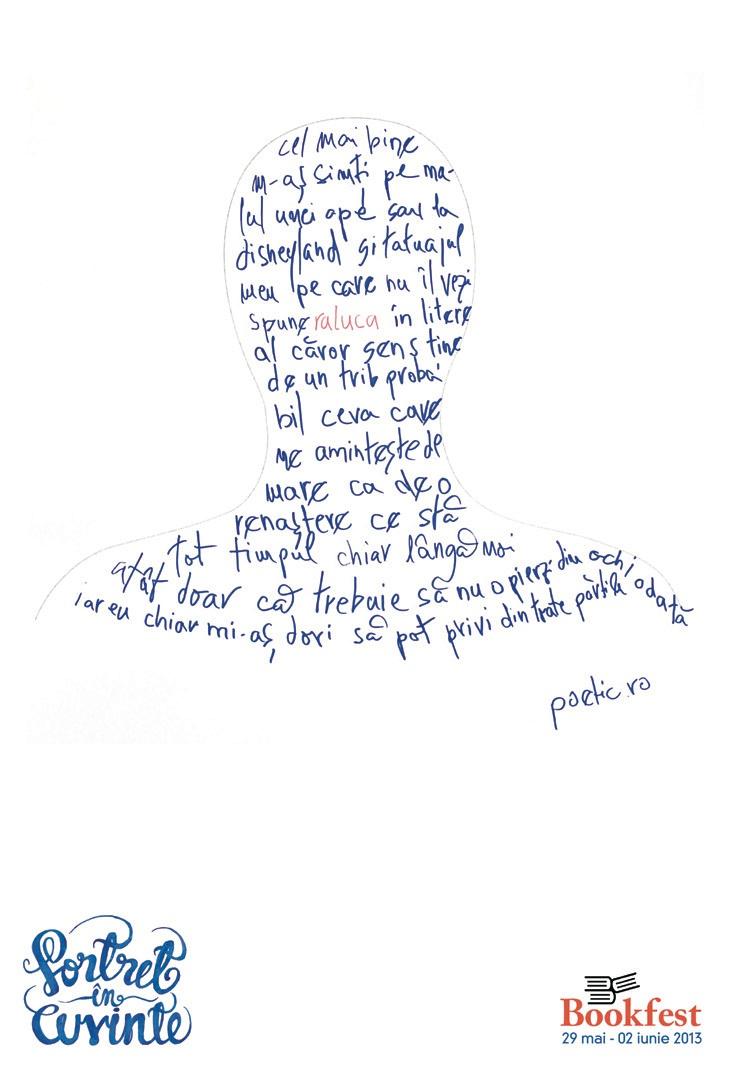 cel mai bine
m-aş simţi pe ma-
lul unei ape sau la
disneyland şi tatuajul
meu pe care nu îl vezi
spune raluca în litere
al căror sens ţine
de un trib proba
bil ceva care
me aminteşte de
mare ca de o
renaştere ce stă
tot timpul chiar lângă noi
atât doar că trebuie să nu o pierzi din ochi
iar eu chiar mi-aş dori să pot privi dintrate părţile odată
poetic.ro
Portret
în
Cuvinte
Bookfest
29 mai - 02 iunie 2013